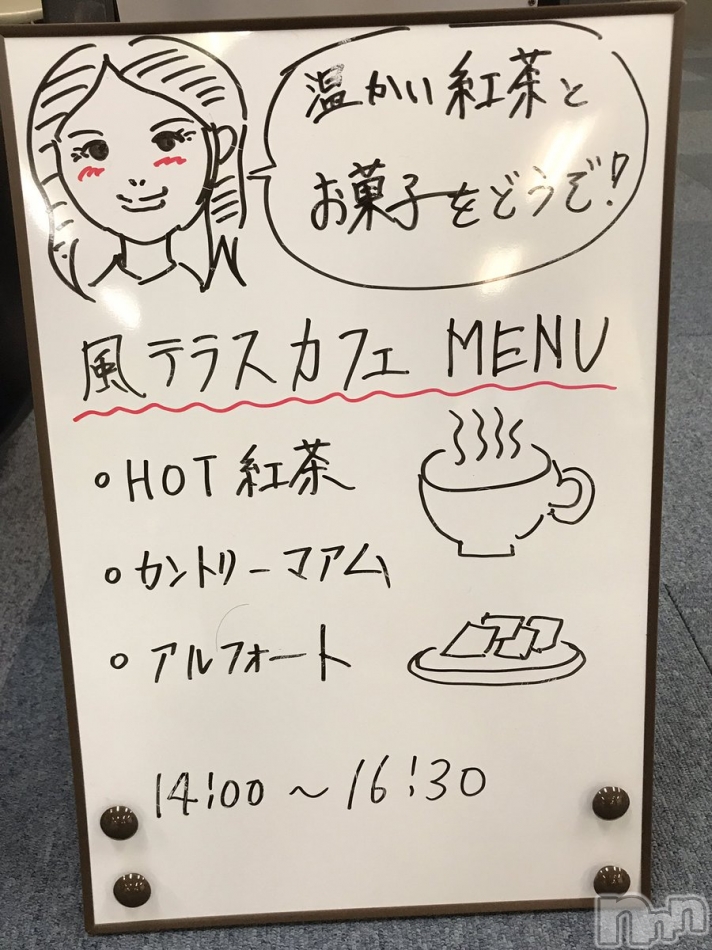 温かい紅茶と
お菓子をどうぞ!
風テラスカフェ MENU
○HOT紅茶
○カントリーマアム
○アルフォート
14:00～16:30